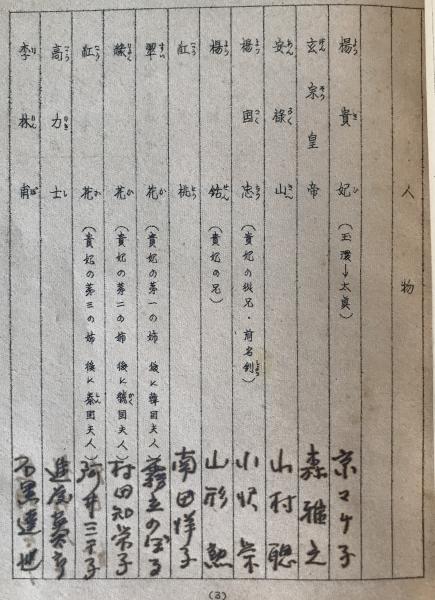 人物
楊貴妃（玉環→太真）京マチ子
玄宗皇帝 森雅之
安祿山 山村聰
楊国忠（貴妃の従兄・前名釗）小沢栄
楊銛（貴妃の兄）山形勲
紅桃 南田洋子
翠花（貴妃の第一の姉 後に韓国夫人）霧立のぼる
綠花（貴妃の第二の姉 後に虢国夫人）村田知栄子
紅花（貴妃の第三の姉 後に秦国夫人）阿井三千子
高力士 進藤英太郎
李林甫 石黒達也
(3)